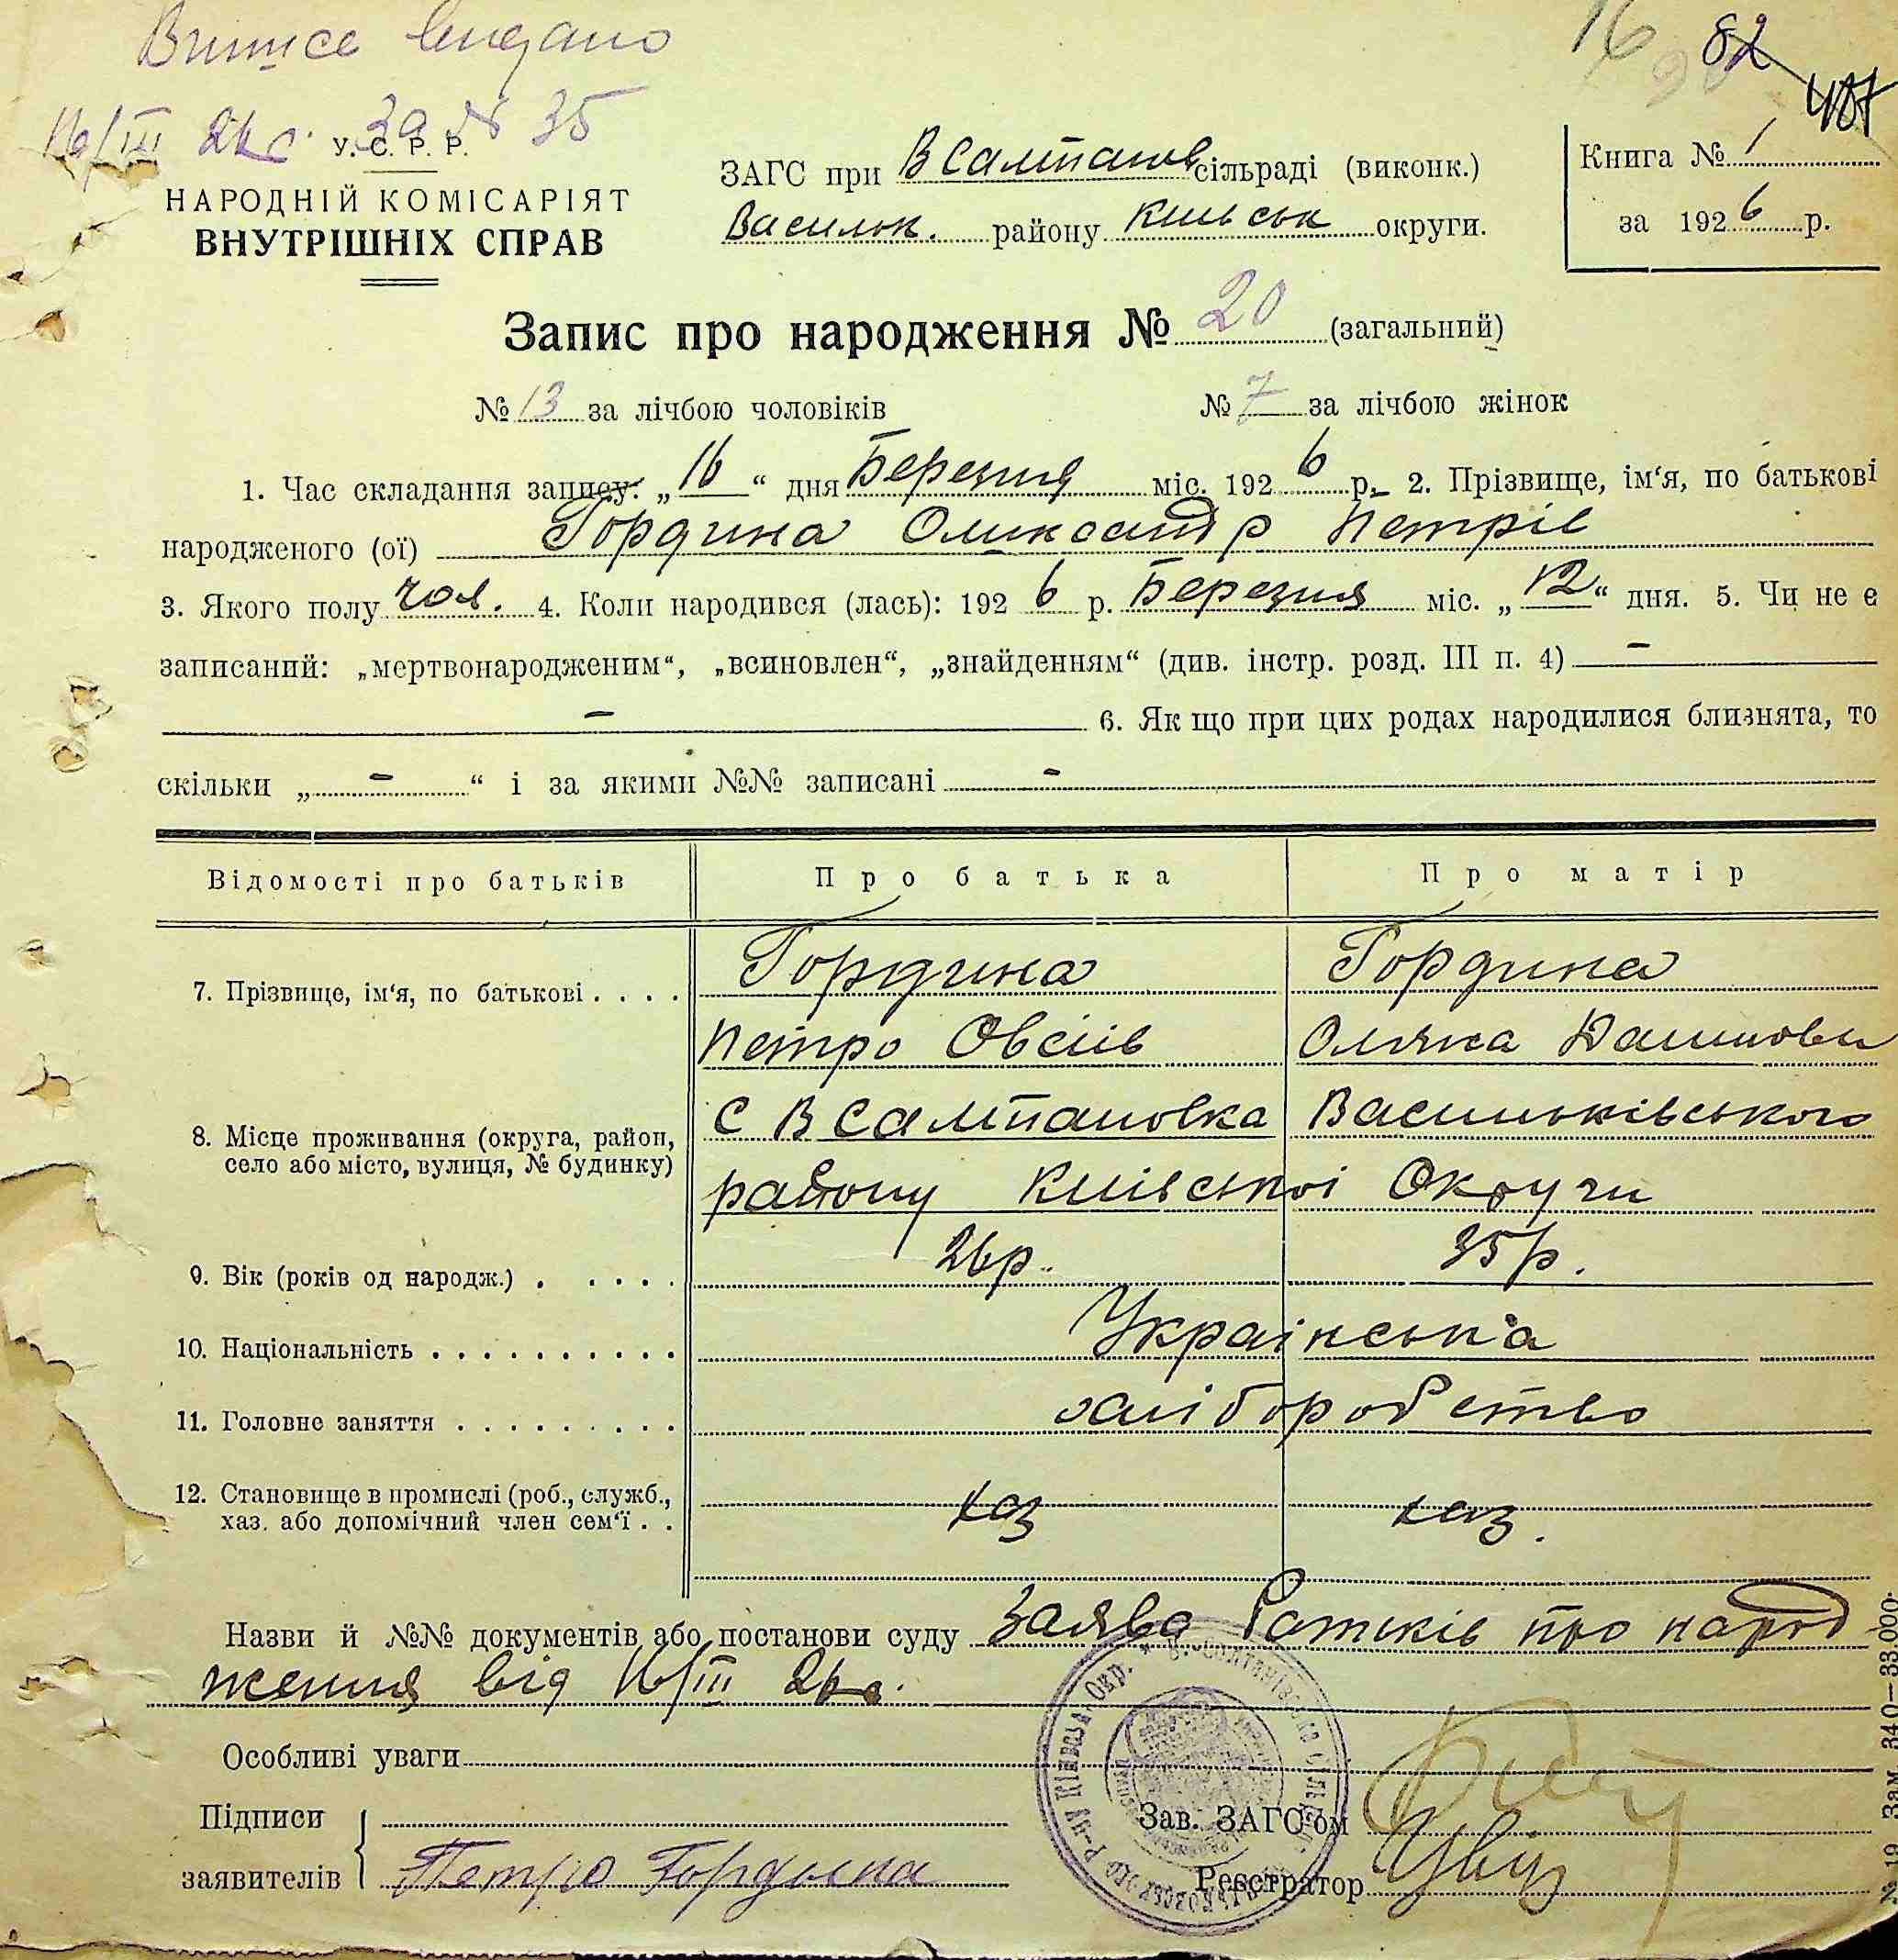 Виписе видано
16
82
407
16/III 26 р. за № 35
У. С. Р. Р.
НАРОДНІЙ КОМІСАРІЯТ
ВНУТРІШНІХ СПРАВ
ЗАГС при В Салтанов сільраді (виконк.)
Васильк. району Київськ округи.
Книга № 1
за 1926 р.
Запис про народження № 20 (загальний)
№ 13 за лічбою чоловіків № 7 за лічбою жінок
1. Час складання запису: „16“ дня Березня міс. 1926 р. 2. Прізвище, ім‘я, по батькові
народженого (ої) Гордина Олександр Петрів
3. Якого полу чол. 4. Коли народився (лась): 1926 р. Березня міс. „12“ дня. 5. Чи не є
записаний: „мертвонародженим“, „всиновлен“, „знайденням“ (див. інстр. розд. III п. 4) –
– 6. Як що при цих родах народилися близнята, то
скільки „ – “ і за якими №№ записані –
Відомості про батьків Про батька Про матір
7. Прізвище, ім‘я, по батькові . . . . Гордина Гордина
Петро Овсіїв Оляна
8. Місце проживання (округа, район, село або місто, вулиця, № будинку)
с В Салтановка Васильківського
району Київської Округи
9. Вік (років од народж.) . . . . . 26р. 35р.
10. Національність . . . . . . . . . . Українська
11. Головне заняття . . . . . . . . . хліборобство
12. Становище в промислі (роб., служб.,
хаз. або допомічний член сем‘ї . . хаз хаз.
Назви й №№ документів або постанови суду Заява Батьків про народ
ження від 16/III 26 р.
Особливі уваги
Підписи
заявителів Петро Гордына
Зав. ЗАГС‘ом
Реєстратор
№ 19 Зам. 340—33.000.